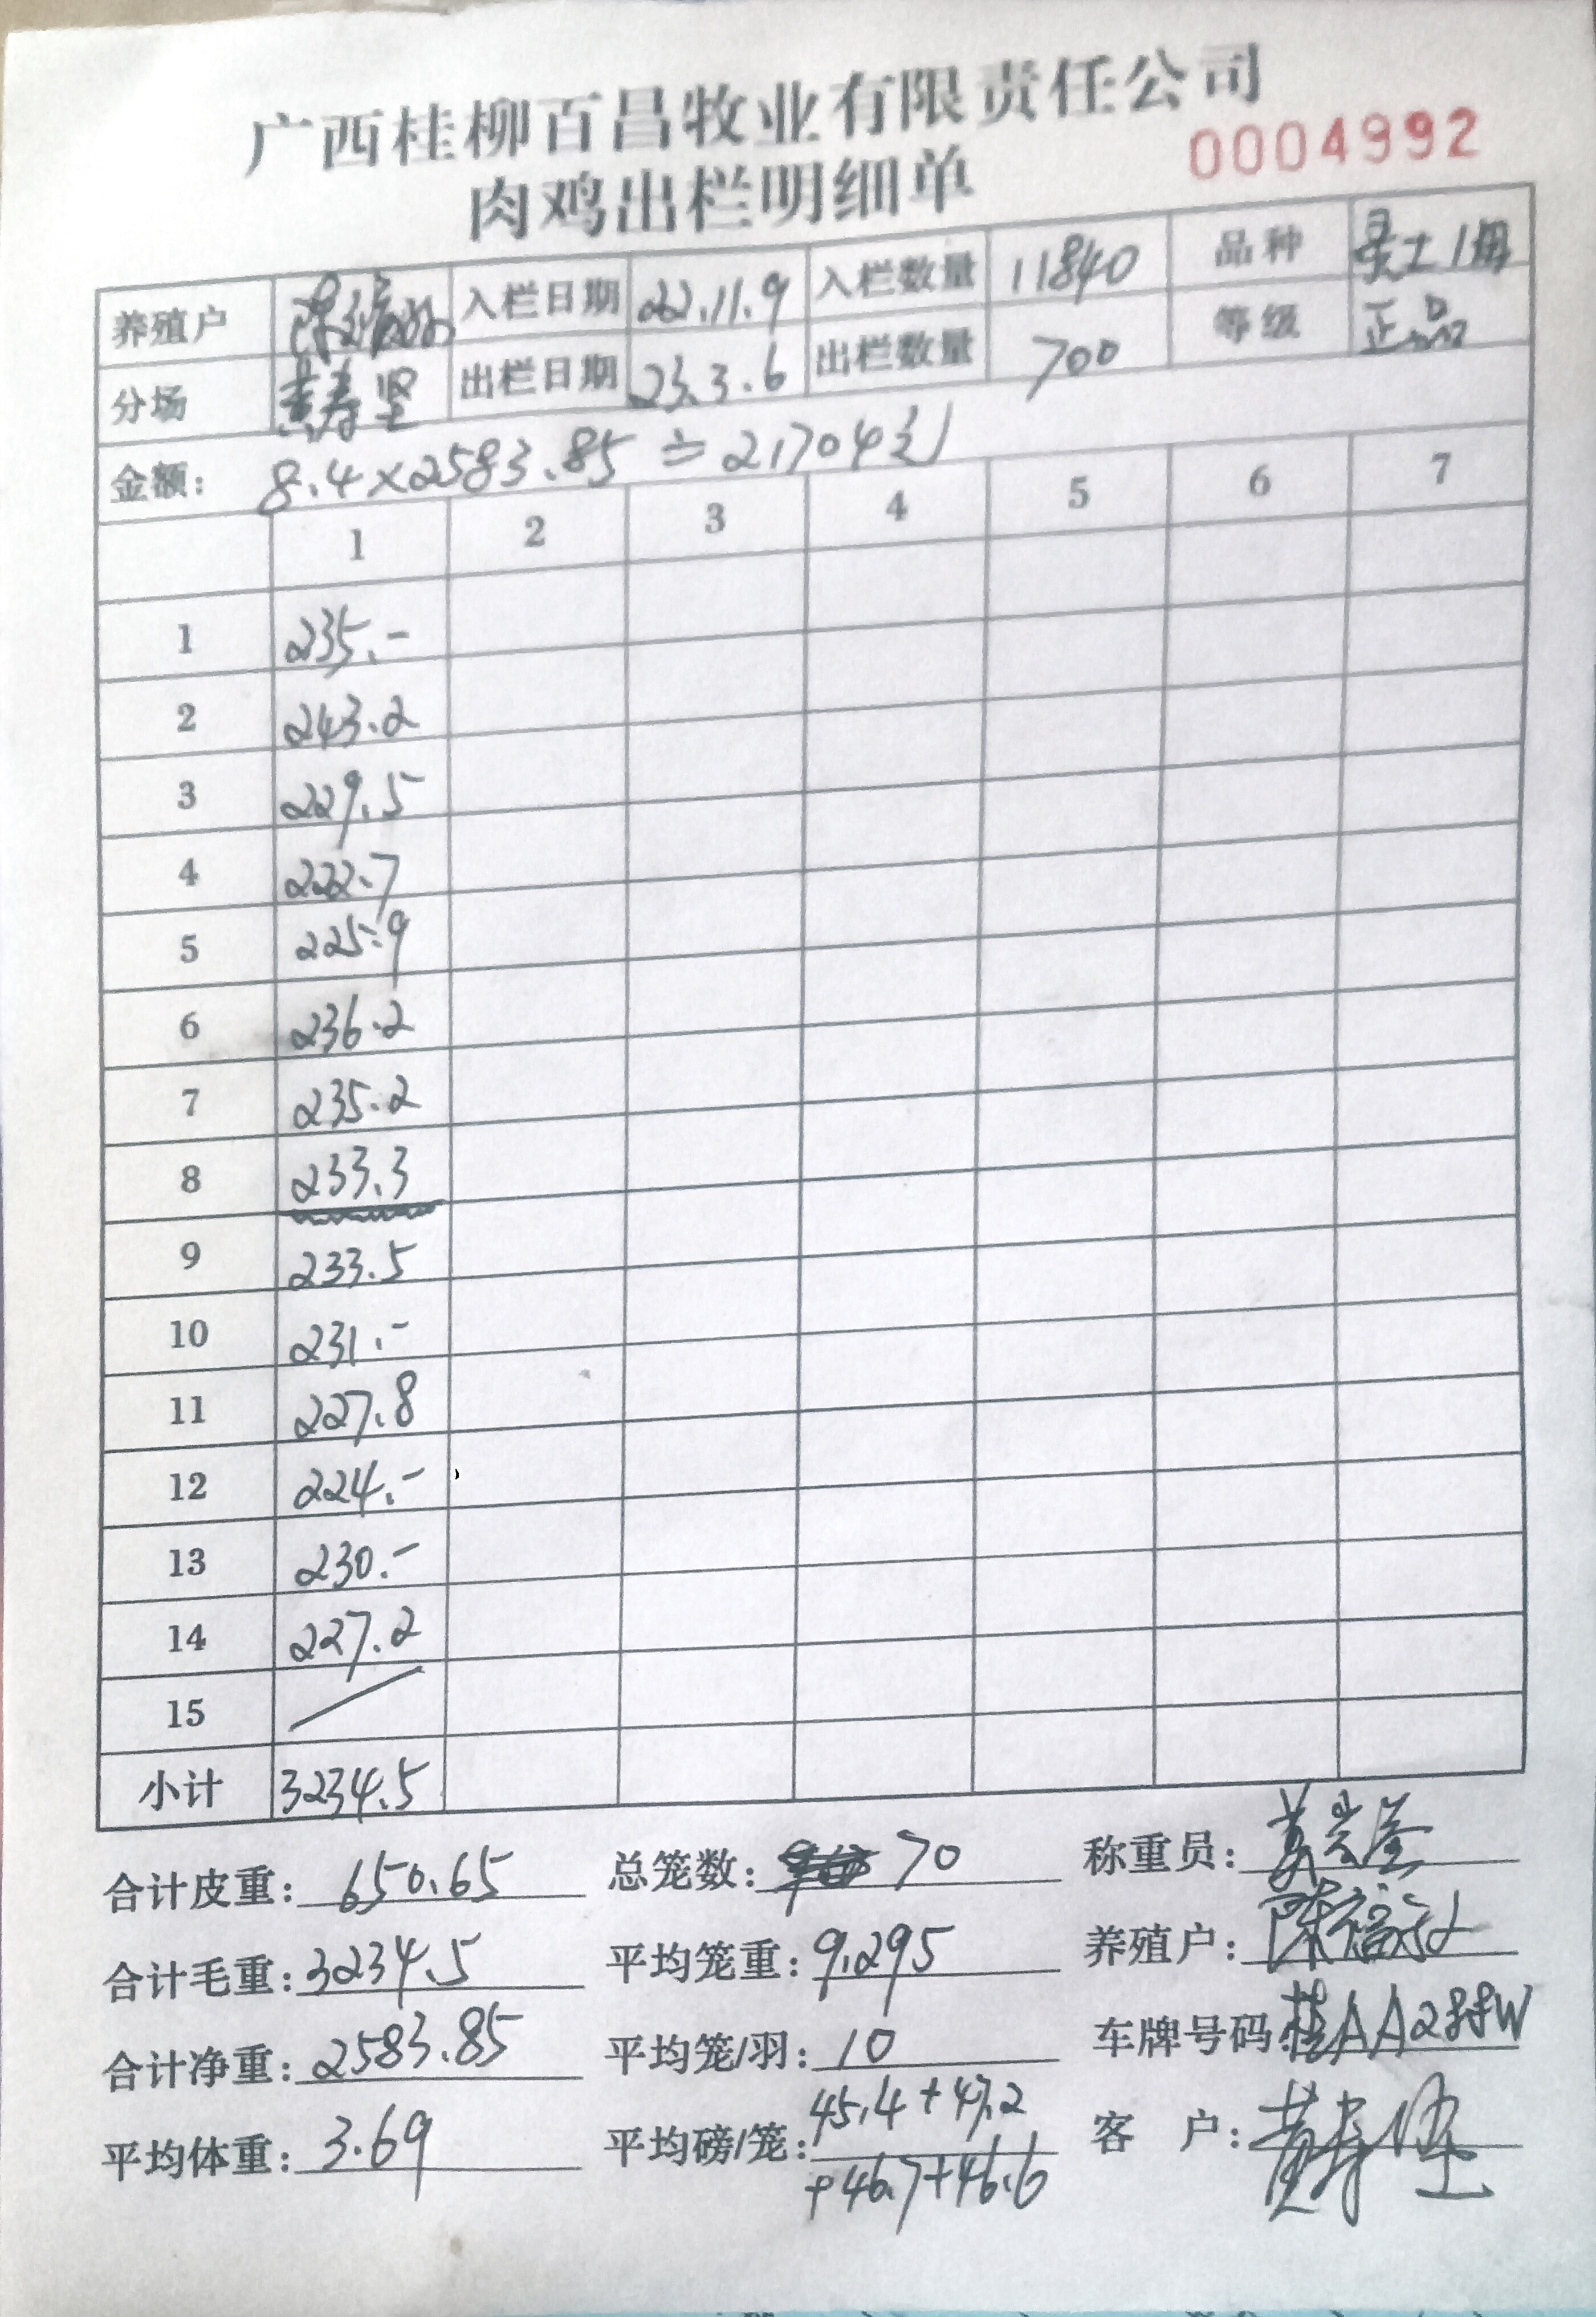 广西桂柳百昌牧业有限责任公司
肉鸡出栏明细单 0004992
养殖户 入栏日期 22.11.9 入栏数量 11840 品种
分场 黄寿坚 出栏日期 23.3.6 出栏数量 700 等级 正品
金额: 8.4×2583.85≐21704元
1 2 3 4 5 6 7
1 235.-
2 243.2
3 229.5
4 222.7
5 225.9
6 236.2
7 235.2
8 233.3
9 233.5
10 231.-
11 227.8
12 224.-
13 230.-
14 227.2
15
小计 3234.5
合计皮重: 650.65 总笼数: 70 称重员:
合计毛重: 3234.5 平均笼重: 9.295 养殖户:
合计净重: 2583.85 平均笼/羽: 10 车牌号码: 桂AA288W
平均体重: 3.69 平均磅/笼: 45.4+47.2 客户: 黄寿坚
+46.7+46.6